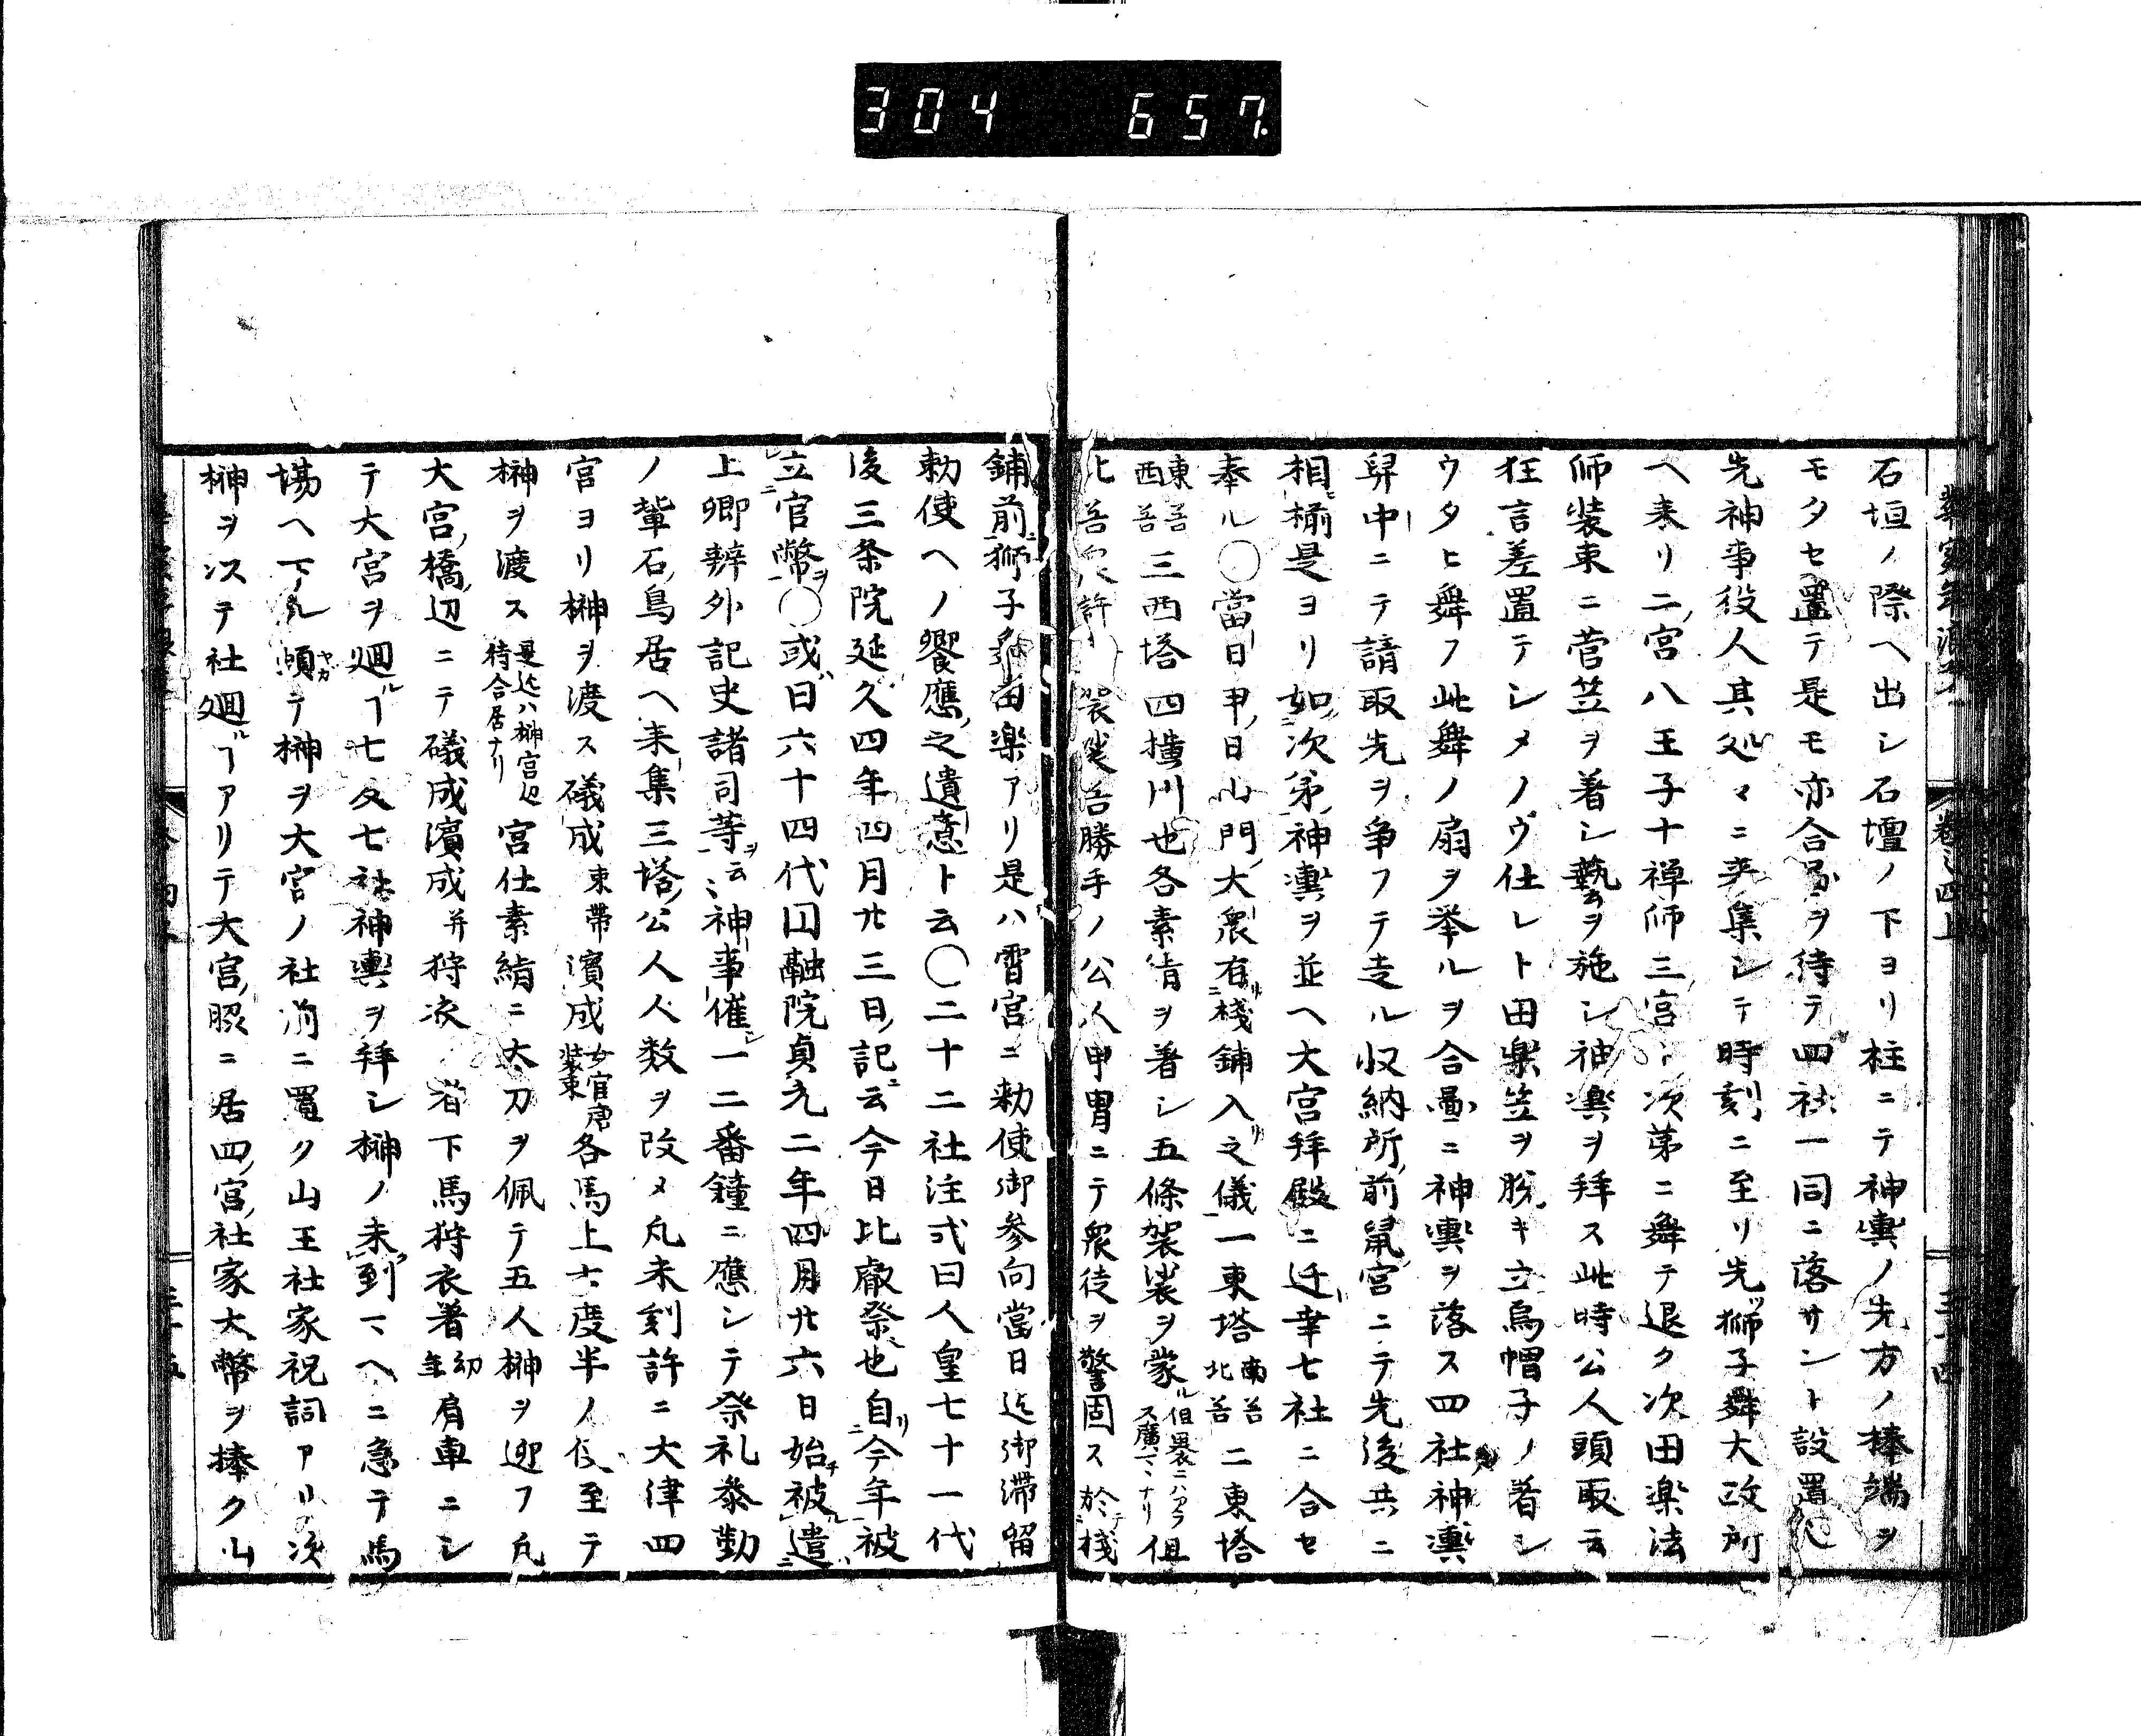 304 657
石垣ノ際ヘ出シ石壇ノ下ヨリ柱ニテ神輿ノ先方ノ棒端ヲ
モタセ置テ是モ亦合図ヲ待テ四社一同ニ落サント設置心
先神事役人其処々ニ来集シテ時刻ニ至リ先獅子舞大政所
ヘ来リ二宮八王子十禅師三宮ト次第ニ舞テ退ク次田楽法
師装束ニ菅笠ヲ著シ藝ヲ施シ神輿ヲ拜ス此時公人頭取云
狂言差置テシメノヴ仕レト田楽笠ヲ脱キ立烏帽子ノ著シ
ウタヒ舞フ此舞ノ扇ヲ挙ルヲ合図ニ神輿ヲ落ス四社神輿
舁中ニテ請取先ヲ争フテ走ル収納所前鼠宮ニテ先後共ニ
相揃是ヨリ如次第神輿ヲ並ヘ大宮拜殿ニ迁幸七社ニ合セ
奉ル〇當日甲日山門大衆有棧鋪入之儀一東塔南谷北谷二東塔
東谷西谷三西塔四横川也各素絹ヲ著シ五條袈裟ヲ蒙ル但
谷衆許リ袈裟谷勝手ノ公人甲冑ニテ衆徒ヲ警固ス於棧
鋪前獅子田楽アリ是ハ宵宮ニ勅使御参向當日迄御滞留
勅使ヘノ饗應之遺意ト云〇二十二社注式曰人皇七十一代
後三条院延久四年四月廿三日記云今日比叡祭也自今年被
立官幣〇或曰六十四代円融院貞元二年四月廿六日始被遣
上卿辨外記史諸司等云々神事催一二番鐘ニ應シテ祭礼参勤
ノ輩石鳥居ヘ来集三塔公人人数ヲ改メ凡未刻許ニ大津四
宮ヨリ榊ヲ渡ス礒成束帯濱成女官唐装束各馬上六度半ノ使至テ
榊ヲ渡ス是迄ハ榊宮辺待合居ナリ宮仕素絹ニ太刀ヲ佩テ五人榊ヲ迎フ凡
大宮橋辺ニテ礒成濱成并狩衣着下馬狩衣著幼年肩車ニシ
テ大宮ヲ廻ルヿ七反七社神輿ヲ拜シ榊ノ未到マヘニ急テ馬
場ヘ下ル頓テ榊ヲ大宮ノ社前ニ置ク山王社家祝詞アリ次
榊ヲ次テ社廻ルヿアリテ大宮腰ニ居四宮社家大幣ヲ捧ク山